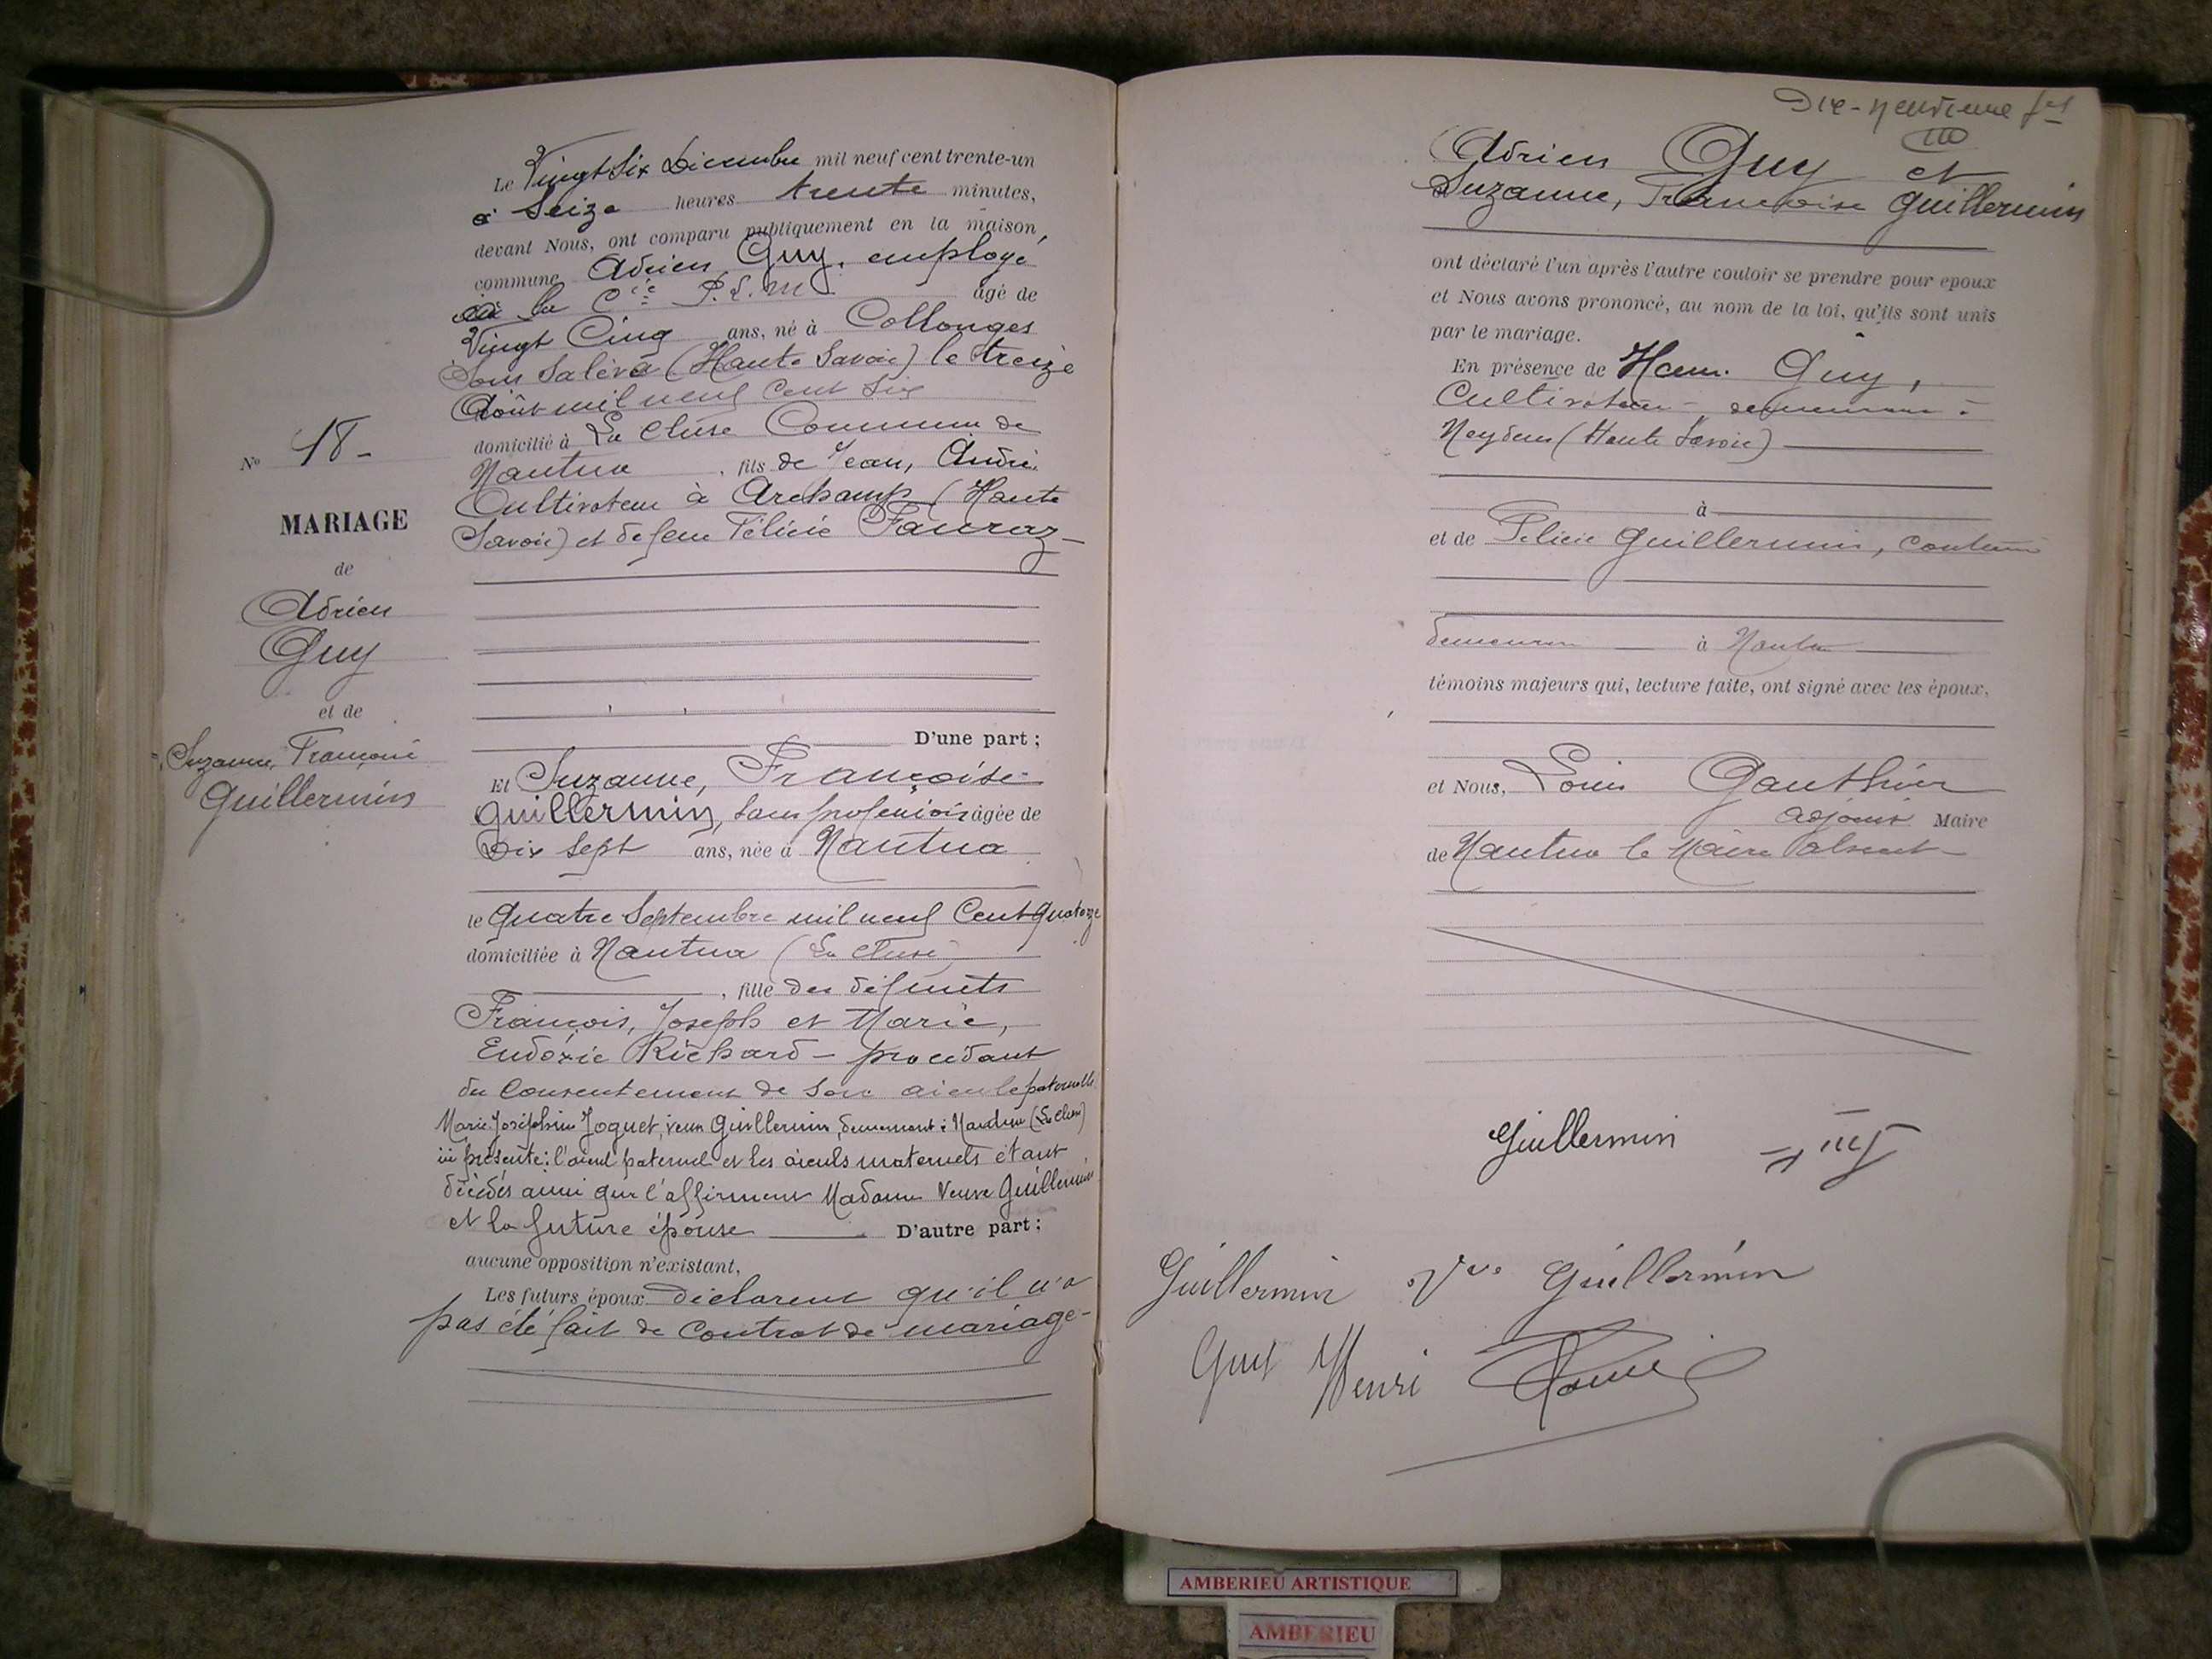 Le Vingt Six Décembre mil neuf cent trente-un
à Seize heures trente minutes,
devant Nous, ont comparu publiquement en la maison
commune Adrien Guy, employé
à la Cie P.L.M. âgé de
Vingt Cinq ans, né à Collonges
Sous Salève (Haute Savoie) le treize
Août mil neuf cent six
domicilié à La Cluse Commune de
Nantua, fils de Jean, André
Cultivateur à Archamp (Haute
Savoie) et de feue Félicie Fauraz
D'une part;
No 18-
MARIAGE
de
Adrien
Guy
et de
Suzanne, Françoise
Guillermin
Et Suzanne, Françoise
Guillermin, sans profession âgée de
Dix sept ans, née à Nantua
le Quatre Septembre mil neuf Cent Quatorze
domiciliée à Nantua (La Cluse)
, fille des défunts
François, Joseph et Marie,
Eudoxie Richard - procédant
du Consentement de son aieule paternelle
Marie Joséphine Joguet, veuve Guillermin, demeurant à Nantua (La Cluse)
ici présente; l'aieul paternel et les aieuls maternels étant
décédés ainsi que l'affirment Madame Veuve Guillermin
et la future épouse D'autre part;
aucune opposition n'existant,
Les futurs époux déclarent qu'il n'a
pas été fait de contrat de mariage-
Dix-neuvième ft
Adrien Guy et
Suzanne, Françoise Guillermin
ont déclaré l'un après l'autre vouloir se prendre pour epoux
et Nous avons prononcé, au nom de la loi, qu'ils sont unis
par le mariage.
En présence de Henri Guy,
Cultivateur demeurant à
Neydens (Haute Savoie)
à
et de Félicie Guillermin, couturière
demeurant à Nantua
témoins majeurs qui, lecture faite, ont signé avec les époux,
et Nous, Louis Gauthier
adjoint Maire
de Nantua le Maire absent-
Guillermin Guy
Guillermin Vve Guillermin
Guy Henri
AMBERIEU ARTISTIQUE
AMBERIEU